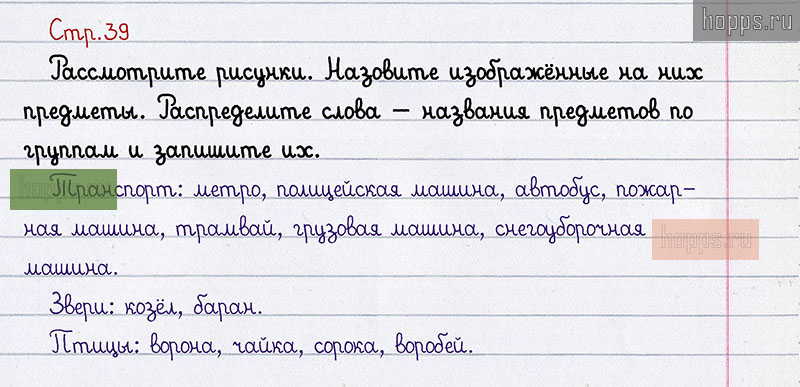 hopps.ru
Стр.39
Рассмотрите рисунки. Назовите изображённые на них
предметы. Распределите слова – названия предметов по
группам и запишите их.
hopps.ru Транспорт: метро, полицейская машина, автобус, пожар-
ная машина, трамвай, грузовая машина, снегоуборочная hopps.ru
машина.
Звери: козёл, баран.
Птицы: ворона, чайка, сорока, воробей.